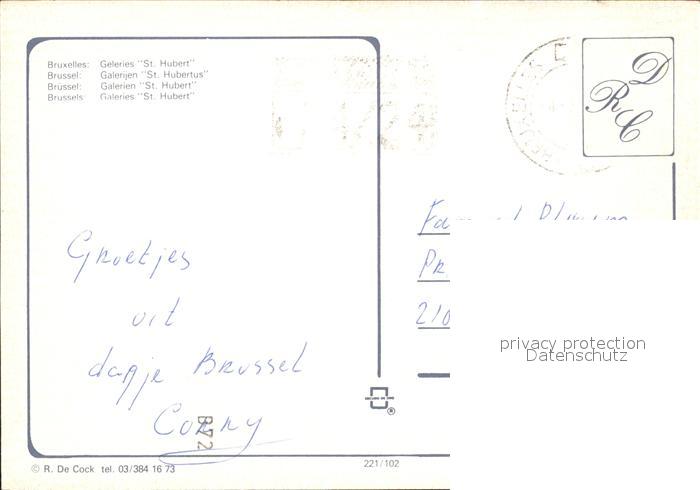 Bruxelles: Geleries "St. Hubert"
Brussel: Galerijen "St. Hubertus"
Brüssel: Galerien "St. Hubert"
Brussels: Galeries "St. Hubert"
DRC
Groetjes
uit
dagje Brussel
Conny
B72
Pr
210
privacy protection
Datenschutz
© R. De Cock tel. 03/384 16 73
221/102